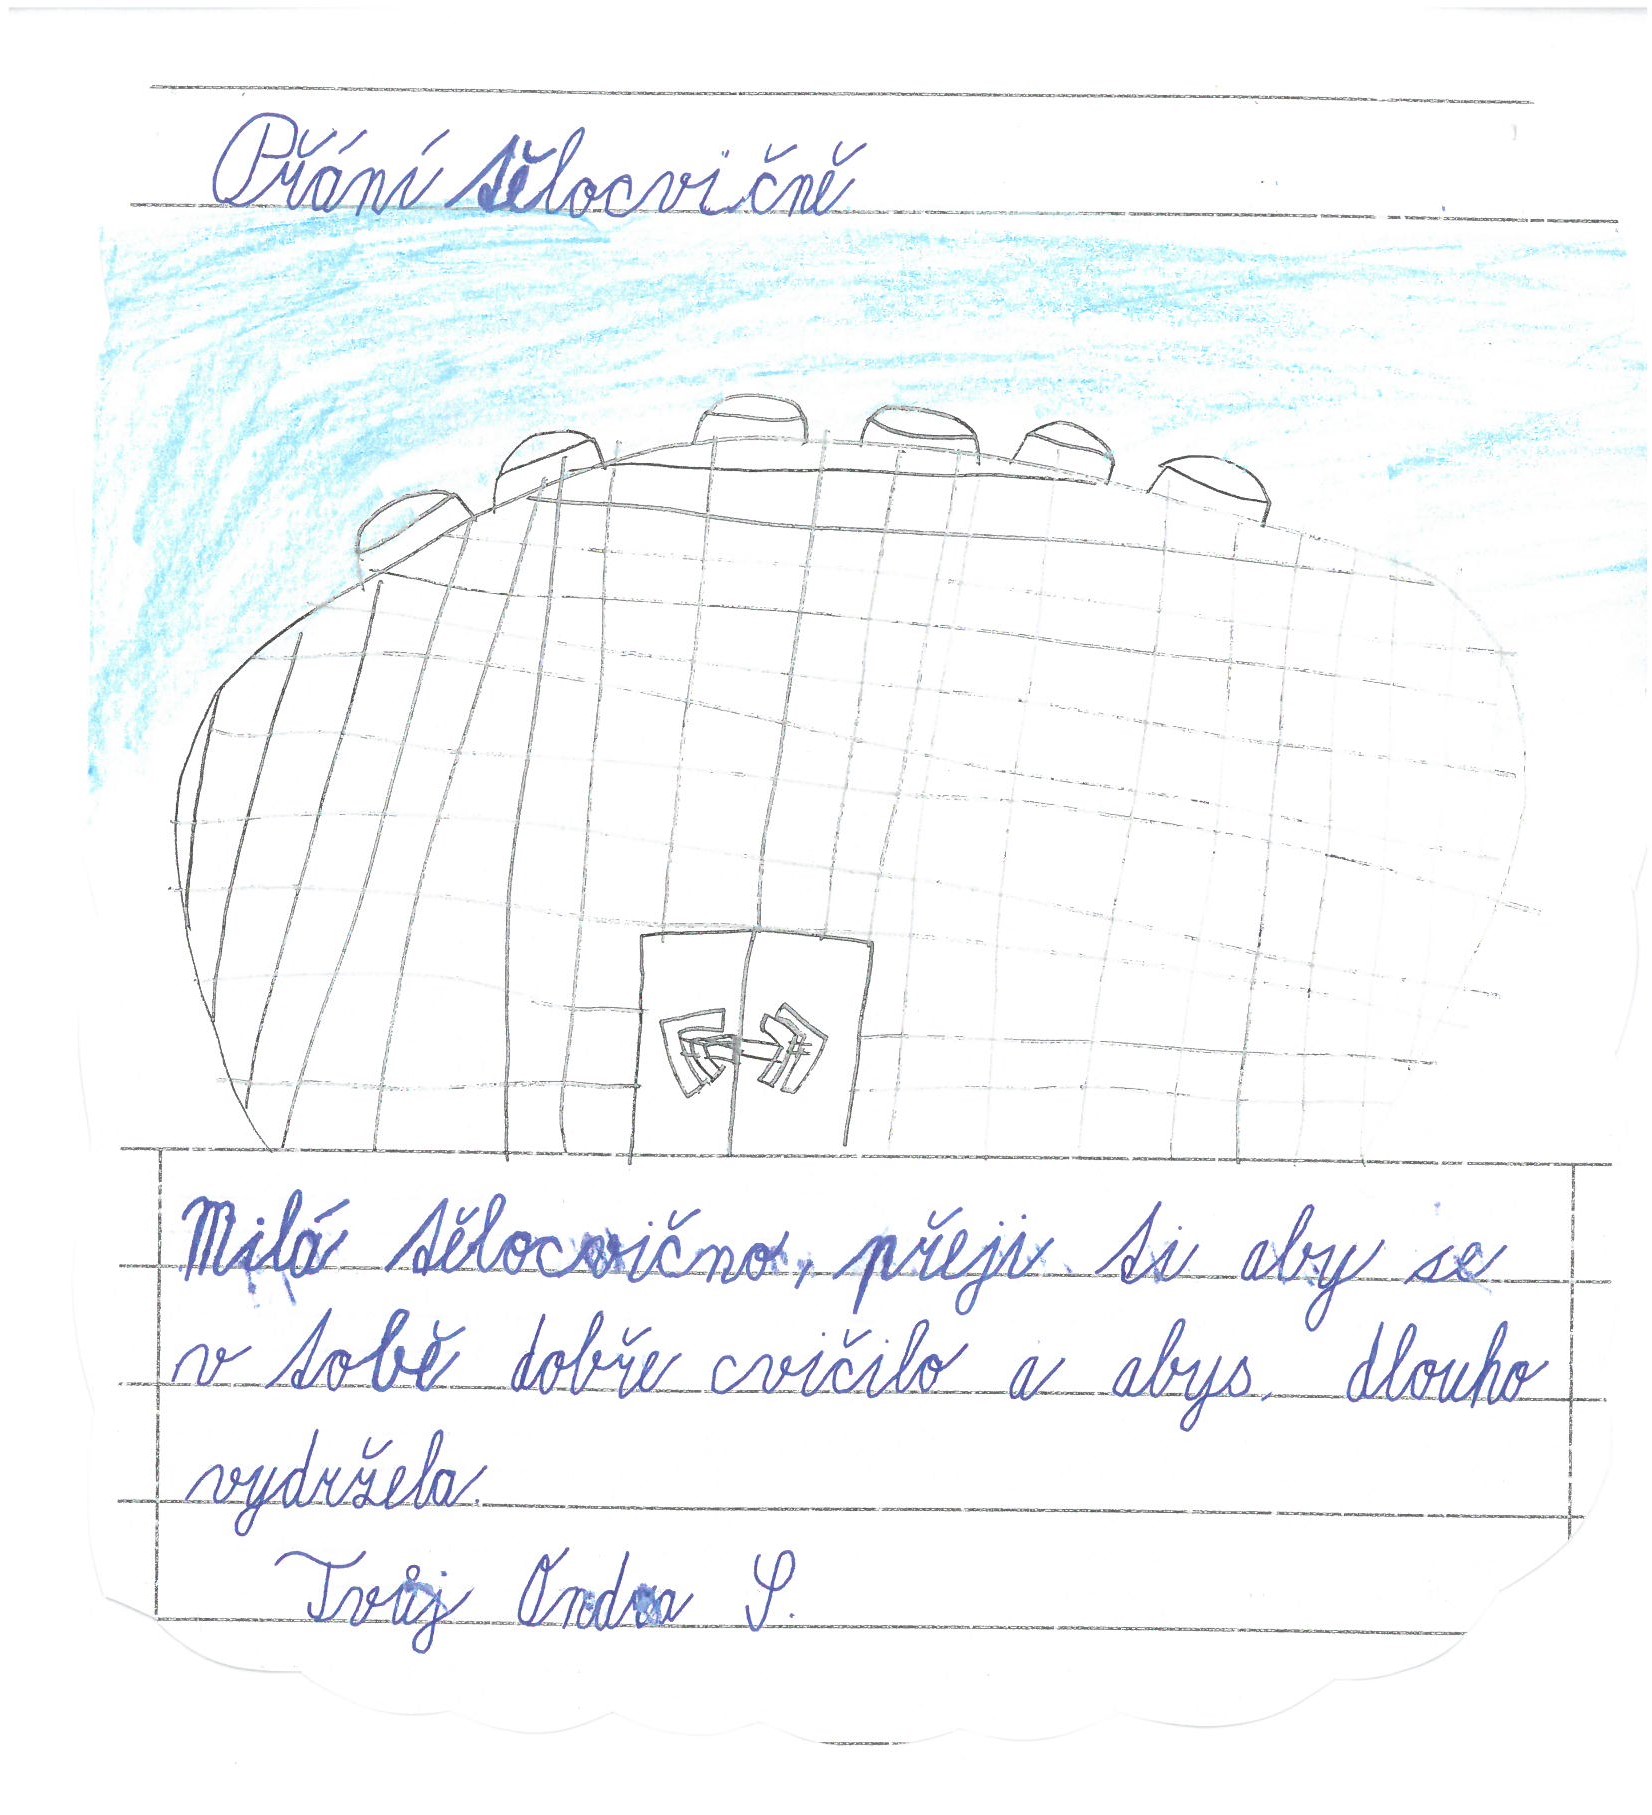 Přání tělocvičně
Milá tělocvično, přeji ti aby se
v tobě dobře cvičilo a abys dlouho
vydržela.
Tvůj Ondra S.